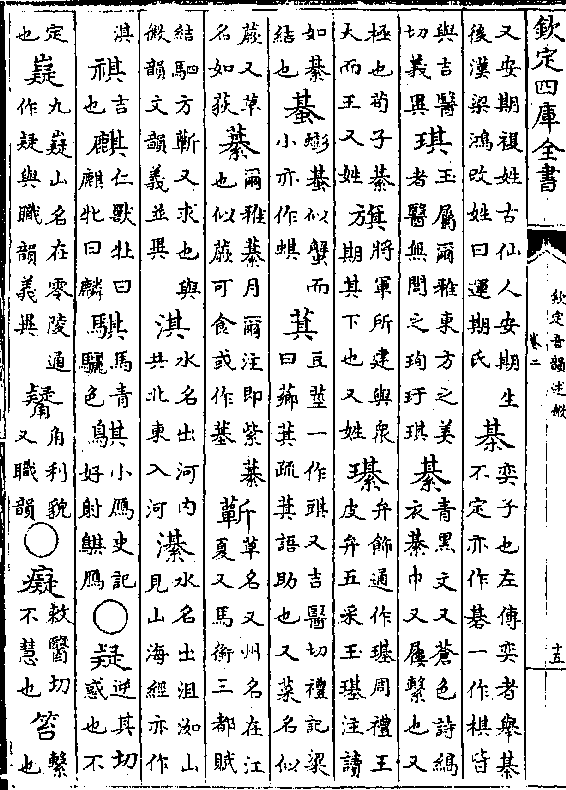 欽定四庫全書
欽定音韻述微
卷二
十五
又安期複姓古仙人安期生後漢梁鴻改姓曰運期氏 棊 奕子也左傳奕者舉棊不定亦作碁一作棋皆
與吉醫切義異 琪 玉屬爾雅東方之美者醫無閭之珣玗琪 綦 青黑文又蒼色詩縞衣綦巾又屨繫也又
極也荀子綦大而王又姓 旗 將軍所建與衆期其下也又姓 璂 弁飾通作璂周禮王皮弁五采玉璂注讀
如綦結也 蟇 蟛蟇似蟹而小亦作蜞 萁 豆莖一作䕤又吉醫切禮記梁曰薌萁疏萁語助也又菜名似
蕨又草名如荻 藄 爾雅藄月爾注即紫藄也似蕨可食或作綦 蘄 草名又州名在江夏又馬銜三都賦
結駟方蘄又求也與微韻文韻義並異 淇 水名出河内共北東入河 濝 水名出沮洳山見山海經亦作
淇 祺 吉也 麒 仁獸牡曰麒牝曰麟 騏 馬青驪色 鶀 小鴈史記好射鶀鴈 ○ 疑 逆其切惑也不
定也 嶷 九嶷山名在零陵通作疑與職韻義異 觺 角利貌又職韻 ○ 癡 敕醫切不慧也 笞 繫也